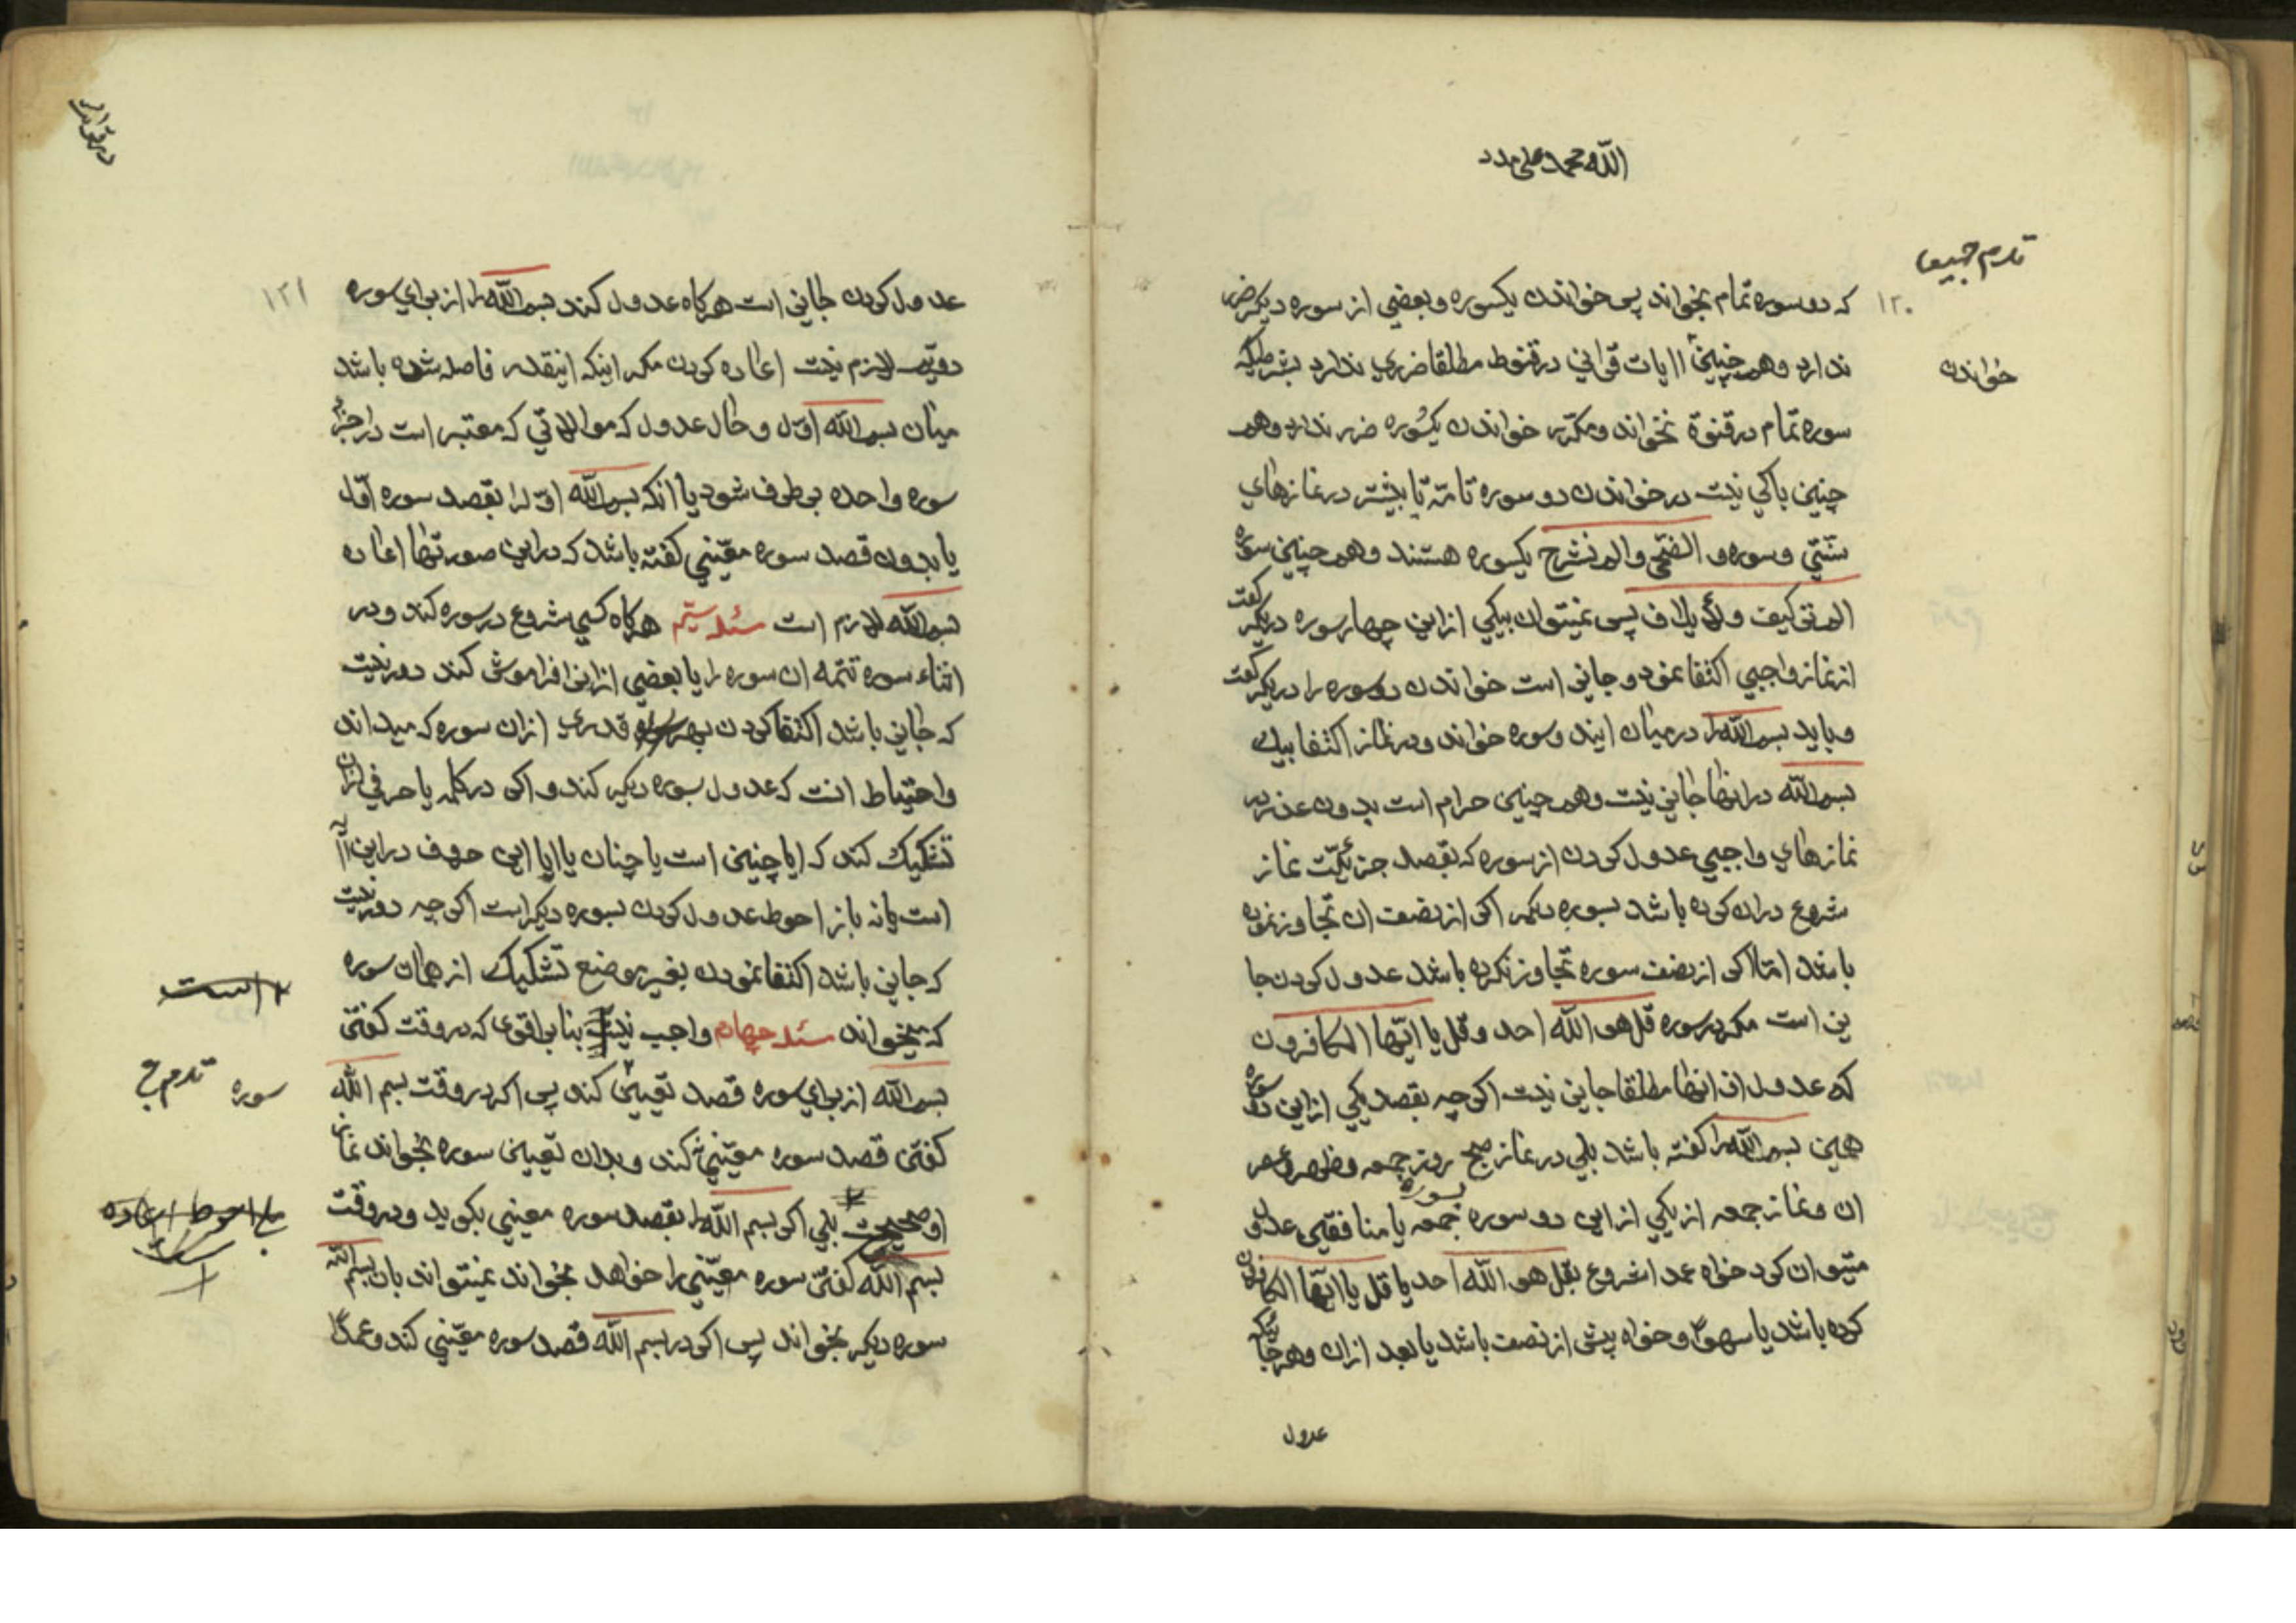 الله محمد علی مدد
۱۲۰
که دو سوره تمام بخواند پس خواندن یکسوره و بعضی از سوره دیگر ضرر
ندارد و همچنین ایات قرانی در قنوط مطلقا ضرری ندارد بشرطیکه
خواندن
سوره تمام در قنوة نخواند و مکرّر خواندن یکسوره ضرر ندارد و هم
چنین باکی نیست در خواندن دو سوره تامّه یا بیشتر در نمازهای
سنّتی و سوره و الضحی و الم نشرح یکسوره هستند و هم چنین سوره
الم تر کیف و لایلاف پس نمیتوان بیکی ازاین چهار سوره در یکرکعت
از نماز واجبی اکتفا نمود و جایز است خواندن دو سوره را در یکرکعت
و باید بسم الله را در میان ایند و سوره خواند و در نماز اکتفا بیک
بسم الله در انها جایز نیست و هم چنین حرام است بدون عذر در
نمازهای واجبی عدول کردن از سوره که بقصد جزئیّت نماز
شروع دران کرده باشد بسوره دیگر اکر از نصف ان تجاوز نموده
باشد امّا اکر از نصف سوره تجاوز نکرده باشد عدول کردن جا
یز است مکر در سوره قل هو الله احد و قل یا ایّها الکافرون
که عدول از انها مطلقا جایز نیست اکر چه بقصد یکی ازاین دو سوره
همین بسم الله را کفته باشد بلی در نماز صبح روز جمعه و ظهر و عصر
ان و نماز جمعه از یکی ازاین دو سوره بسوره جمعه یا منافقین عدول
میتوان کرد خواه عمدا شروع بقل هو الله احد یا قل یا ایّها الکافرون
کرده باشد یا سهوًا و خواه پیش از نصف باشد یا بعد ازان و هر جا که
عدول
۱۲۱
عدول کردن جایز است هرکاه عدول کند بسم الله را از برای سوره
دویّم لازم نیست اعاده کردن مکر اینکه اینقدر فاصله شده باشد
میان بسم الله اوّل و حال عدول که موالاتی که معتبر است در اجزاء
سوره واحده برطرف شود یا انکه بسم الله اوّل را بقصد سوره اوّل
یا بدون قصد سوره معیّنی کفته باشد که دراین صورتها اعاده
بسم الله لازم است مسئله سیّم هرکاه کسی شروع در سوره کند و در
اثناء سوره تتمه ان سوره را یا بعضی ازانرا فراموش کند دور نیست
که جایز باشد اکتفا کردن بهر قدری ازان سوره که میداند
و احتیاط انست که عدول بسوره دیکر کند و اکر در کلمه یا حرفی ازان
تشکیک کند که ایا چنین است یا چنان یا ایا این حروف دراین
است یا نه باز احوط عدول کردن بسوره دیکر است اکر چه دور نیست
که جایز باشد اکتفا نمودن بغیر موضع تشکیک از همان سوره
است
که میخواند مسئله چهارم واجب نیست بنا بر اقوی که در وقت کفتن
بسم الله از برای سوره قصد تعیین کند پس اکر در وقت بسم الله
سوره
کفتن قصد سوره معیّنی کند و بدان تعیین سوره بخواند نماز
او صحیحست بلی اکر بسم الله را بقصد سوره معینی بکوید و در وقت
احوط اعاده است
بسم الله کفتن سوره معیّنی را خواهد بخواند نمیتواند بان بسم الله
سوره دیکر بخواند پس اکر در بسم الله قصد سوره معیّنی کند و عمدًا